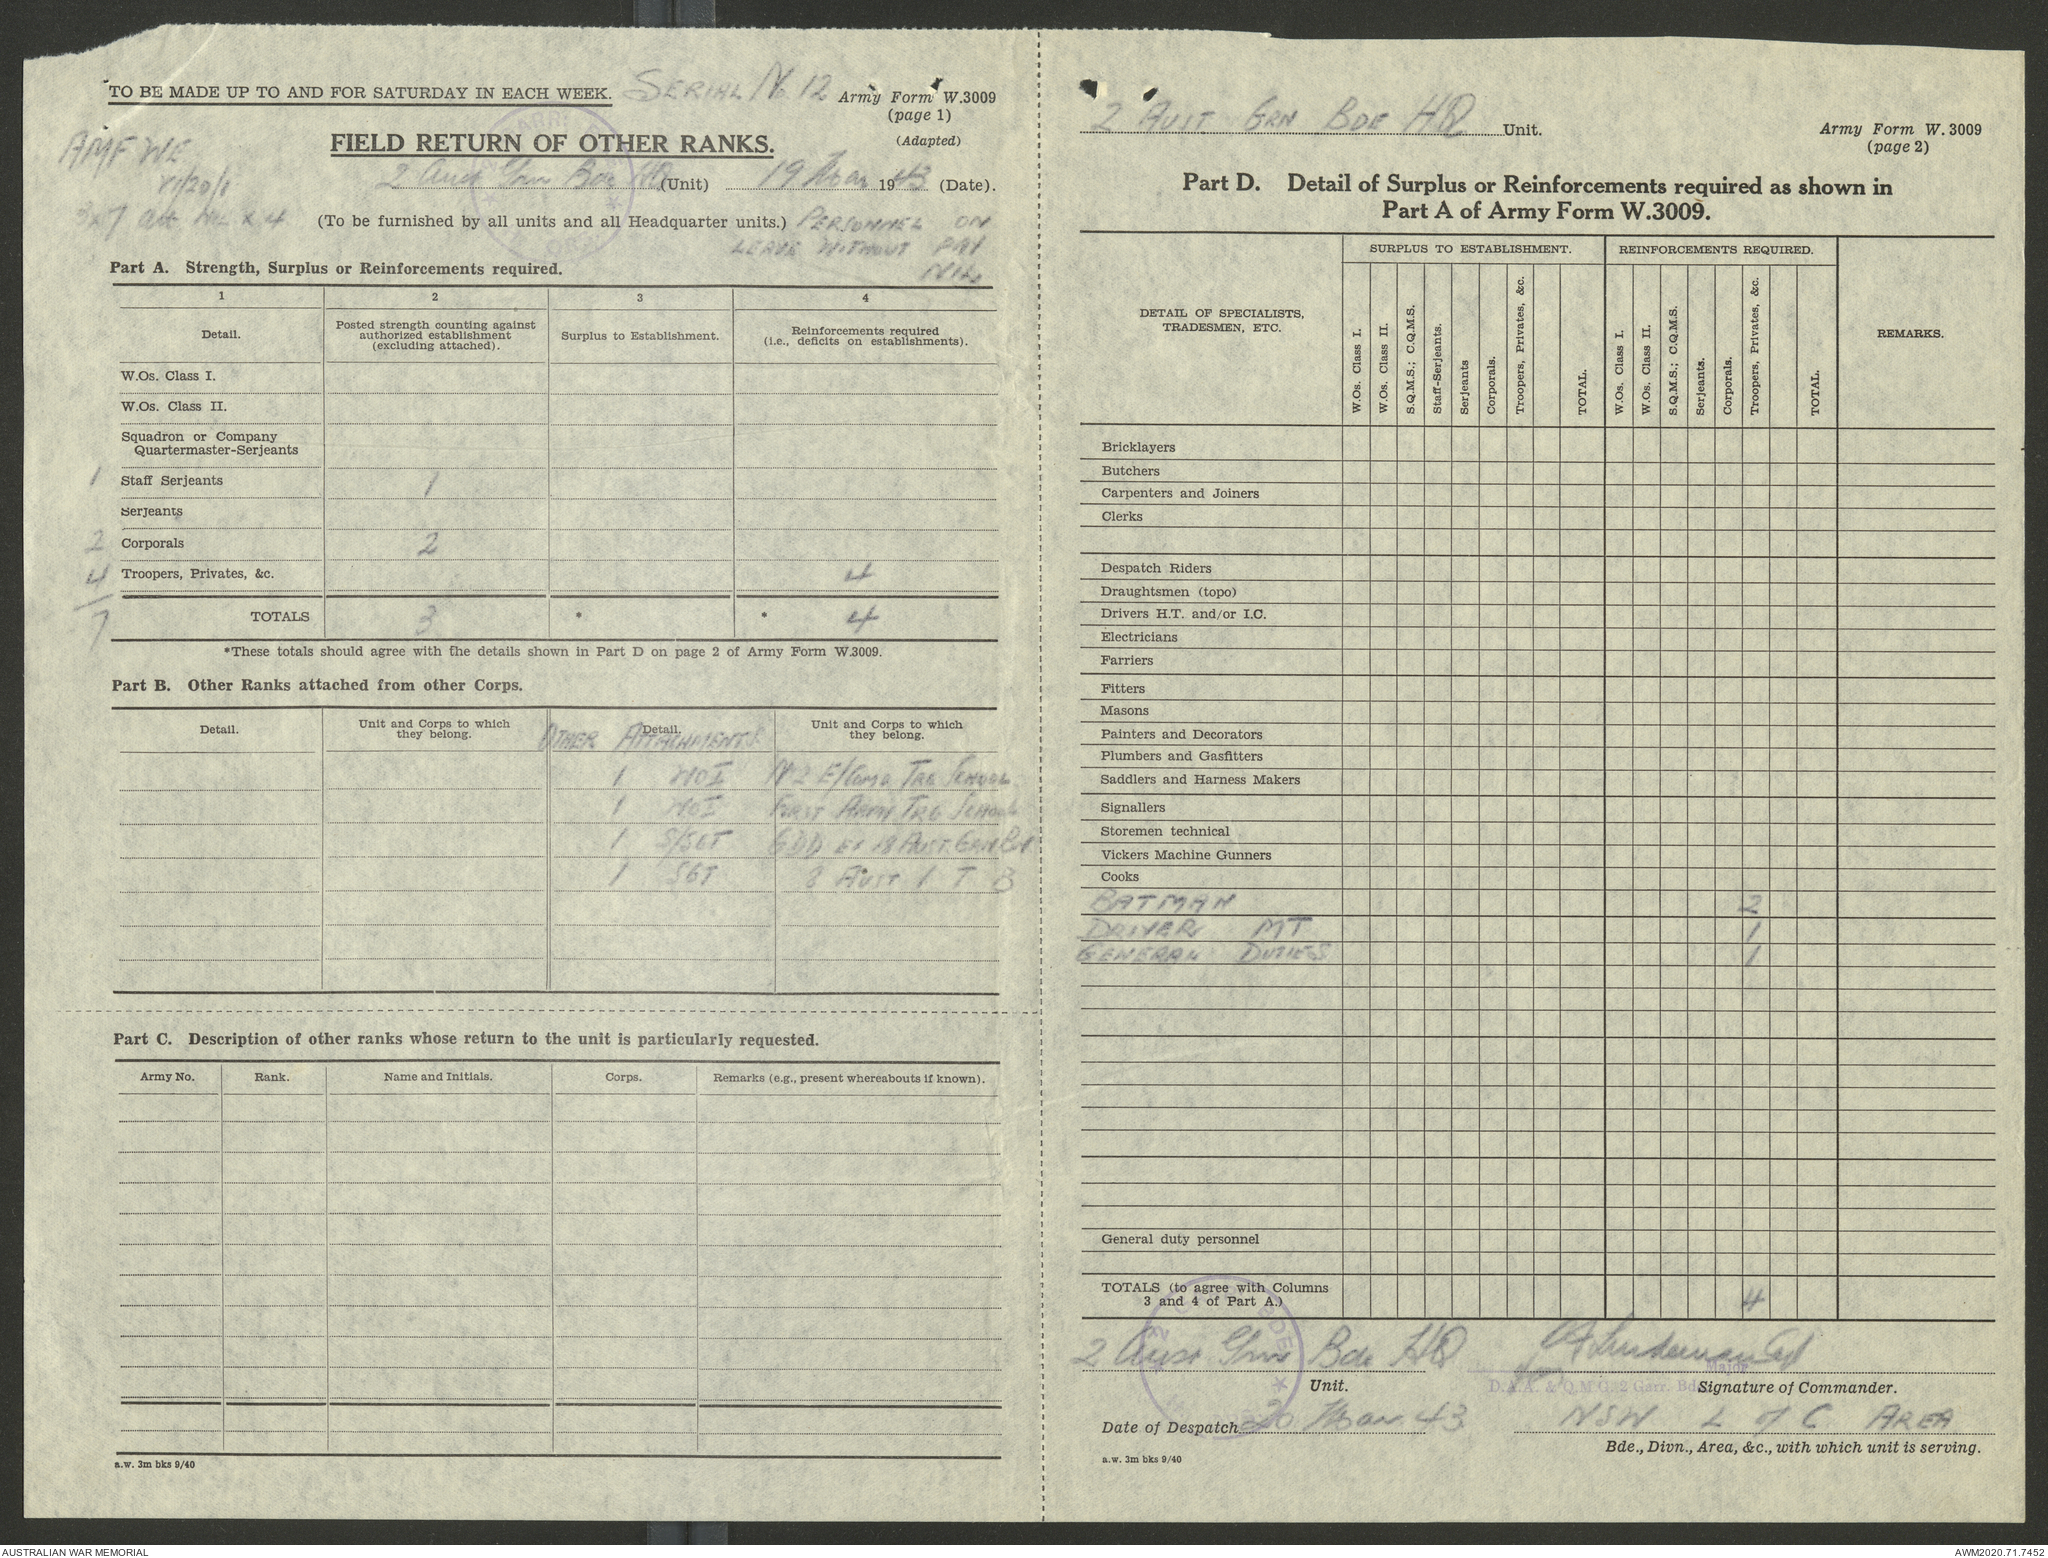 TO BE MADE UP TO AND FOR SATURDAY IN EACH WEEK. SERIAL No 12 Army Form W.3009
(page 1)
(Adapted)
AMF WE
FIELD RETURN OF OTHER RANKS.
2 Aust Grn Bde HQ (Unit) 19 Mar 1943 (Date).
(To be furnished by all units and all Headquarter units.) PERSONNEL ON
LEAVE WITHOUT PAY
NIL
Part A. Strength, Surplus or Reinforcements required.
1 2 3 4
Detail. Posted strength counting against authorized establishment (excluding attached). Surplus to Establishment. Reinforcements required (i.e., deficits on establishments).
W.Os. Class I.
W.Os. Class II.
Squadron or Company
Quartermaster-Serjeants
1 Staff Serjeants 1
Serjeants
2 Corporals 2
4 Troopers, Privates, &c. 4
7 TOTALS 3 * * 4
*These totals should agree with the details shown in Part D on page 2 of Army Form W.3009.
Part B. Other Ranks attached from other Corps.
Detail. Unit and Corps to which they belong. Detail. Unit and Corps to which they belong.
OTHER ATTACHMENTS
1 WOI No 2 E/Comd TRG SCHOOL
1 WOI FIRST ARMY TRG SCHOOL
1 S/SGT GDD 18 AUST GRN BN
1 SGT 8 AUST I T B
Part C. Description of other ranks whose return to the unit is particularly requested.
Army No. Rank. Name and Initials. Corps. Remarks (e.g., present whereabouts if known).
a.w. 3m bks 9/40
2 AUST GRN BDE HQ Unit. Army Form W. 3009
(page 2)
Part D. Detail of Surplus or Reinforcements required as shown in
Part A of Army Form W.3009.
DETAIL OF SPECIALISTS, TRADESMEN, ETC. SURPLUS TO ESTABLISHMENT. REINFORCEMENTS REQUIRED. REMARKS.
W.Os. Class I. W.Os. Class II. S.Q.M.S.; C.Q.M.S. Staff-Serjeants. Serjeants Corporals. Troopers, Privates, &c. TOTAL. W.Os. Class I. W.Os. Class II. S.Q.M.S.; C.Q.M.S. Serjeants. Corporals. Troopers, Privates, &c. TOTAL.
Bricklayers
Butchers
Carpenters and Joiners
Clerks
Despatch Riders
Draughtsmen (topo)
Drivers H.T. and/or I.C.
Electricians
Farriers
Fitters
Masons
Painters and Decorators
Plumbers and Gasfitters
Saddlers and Harness Makers
Signallers
Storemen technical
Vickers Machine Gunners
Cooks
BATMAN 2
DRIVER MT 1
GENERAL DUTIES 1
General duty personnel
TOTALS (to agree with Columns
3 and 4 of Part A.) 4
2 Aust Grn Bde HQ
Major
Unit. D.A.A. & Q.M.G. 2 Garr. Bde Signature of Commander.
Date of Despatch 20 Mar 43 NSW L of C AREA
Bde., Divn., Area, &c., with which unit is serving.
a.w. 3m bks 9/40
AUSTRALIAN WAR MEMORIAL AWM2020.71.7452